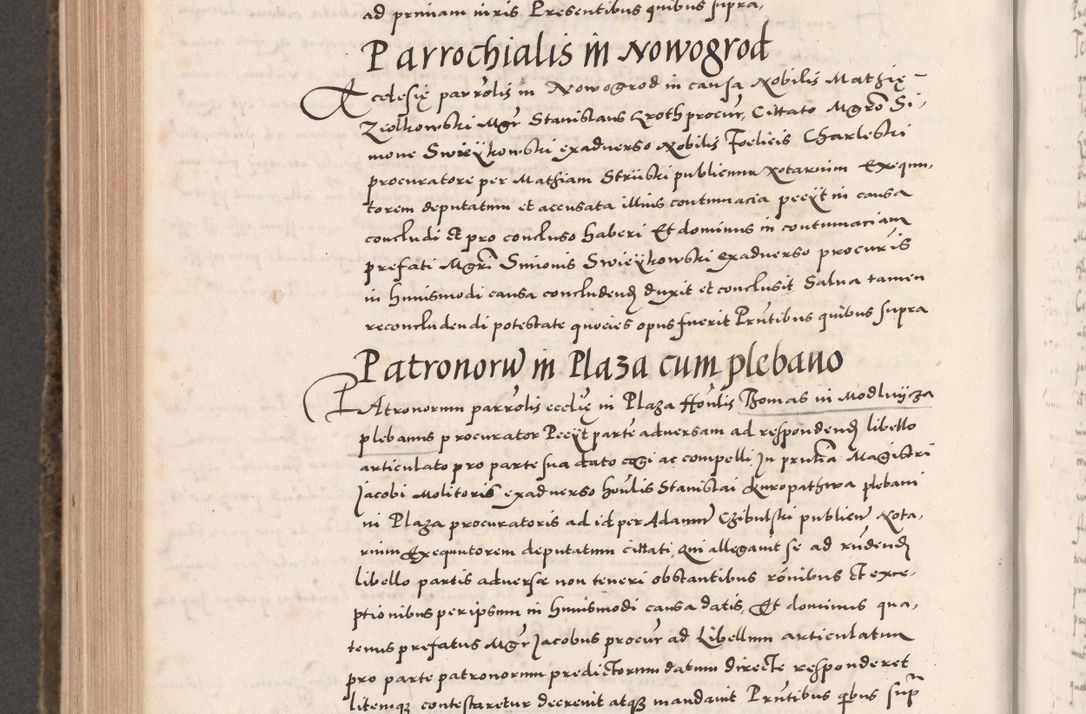 ad primam iuris Presentibus quibus supra,
Parrochialis in Nowogrod
Ecclesię parrolis in Nowogrod in causa Nobilis Mathię
Ziolkowski Mgr Stanislaus Kroth procur, Cittato Mgro Si-
mone Swieykowski exadverso Nobilis Foelicis Charleski
procuratore per Mathiam Strüski publicum Notarium Exequu-
torem deputatum et accusata illius contumacia peeyt in causa
concludi et pro concluso haberi Et dominus in contumaciam
prefati Mgri Simonis Swieykowski exadverso procuris
in huiusmodi causa concludend duxit et conclusit Salva tamen
reconcludendi potestate quocies opus fuerit Prntibus quibus supra
Patronorum in Plaza cum plebano
PAtronorum parrolis eccłię in Plaza Honlis Thomas in Modlnycza
plebanus procurator Peeyt parte adversam ad respondend libello
articulato pro parte sua dato cogi ac compelli In prntia Magistri
Jacobi Molitoris exadverso honlis Stanislai Kuropathwa plebani
in Plaza procuratoris ad id per Adamum Czibulski publicum Nota-
rium Exequutorem deputatum cittati, Qui allegavit se ad rndend
libello partis adversæ non teneri obstantibus rónibus Et exce-
ptionibus per ipsum in huiusmodi causa datis, Et dominus qua-
tenus prefatus Mgr Jacobus procur ad Libellum articulatum
pro parte patronorum predictorum datum directe responderet
litemq contestaretur decrevit atq mandavit Prntibus qbus sup